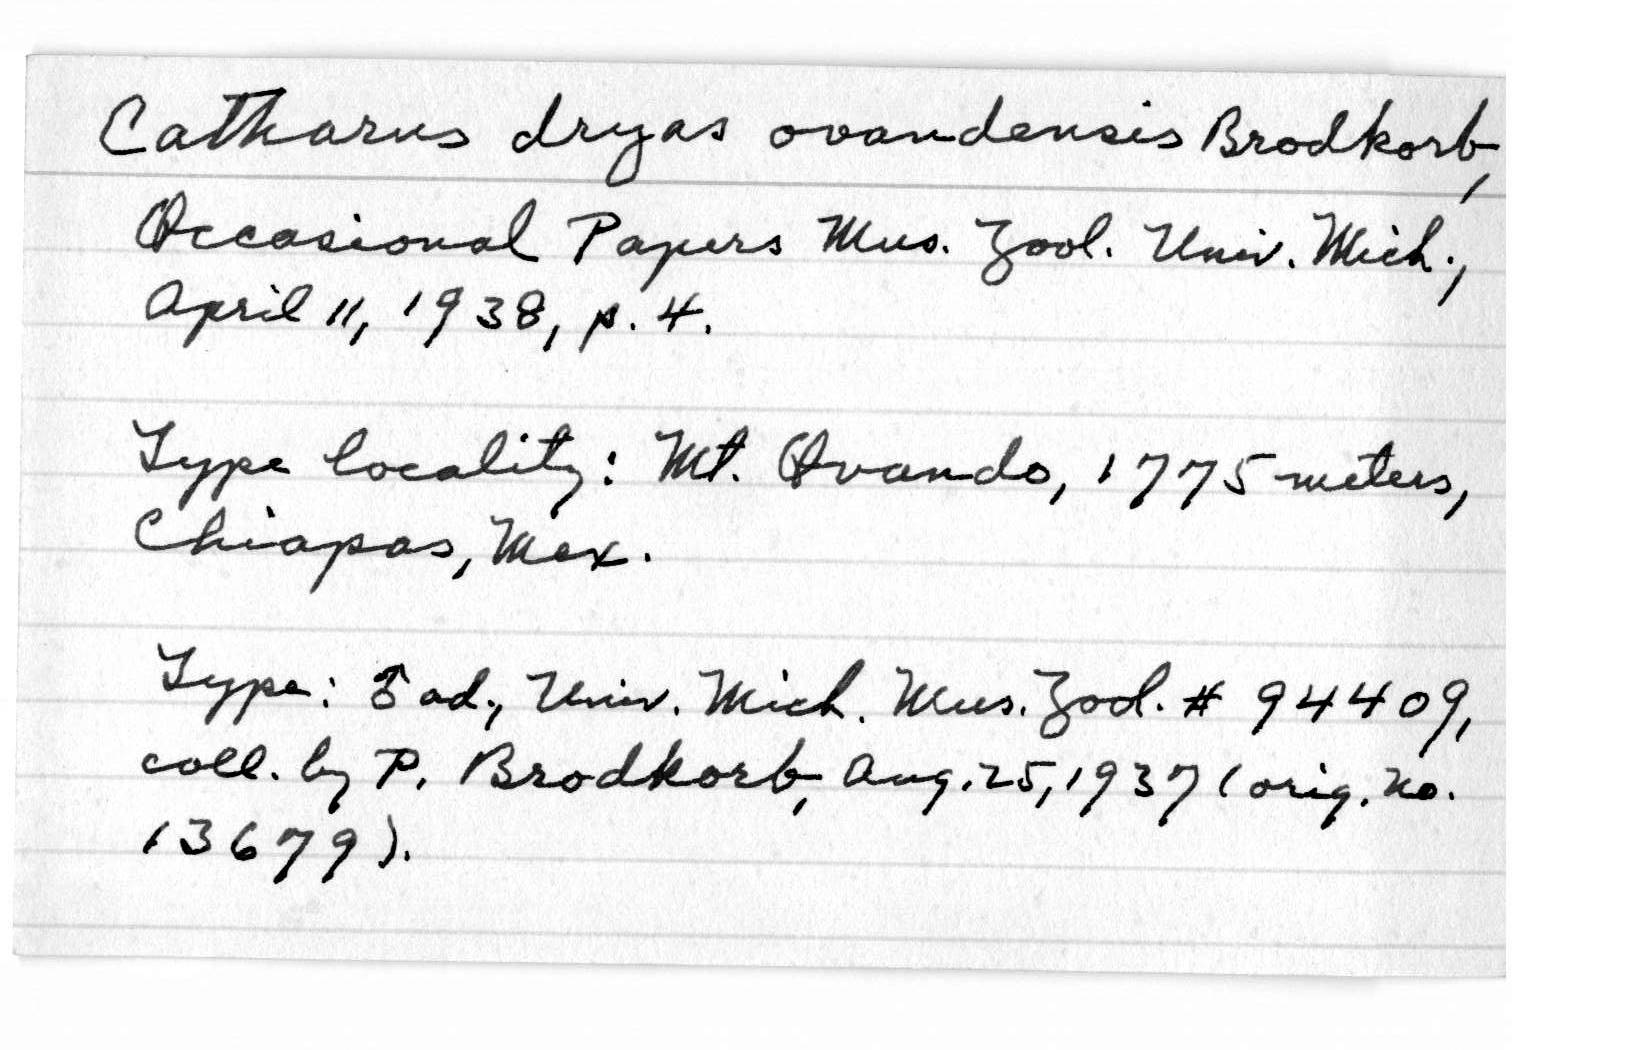 Catharus dryas ovandensis Brodkorb,
Occasional Papers Mus. Zool. Univ. Mich.,
April 11, 1938, p. 4.
Type locality: Mt. Ovando, 1775 meters,
Chiapas, Mex.
Type: ♂ ad., Univ. Mich. Mus. Zool. # 94409,
coll. by P. Brodkorb, Aug. 25, 1937 (orig. no.
13679).